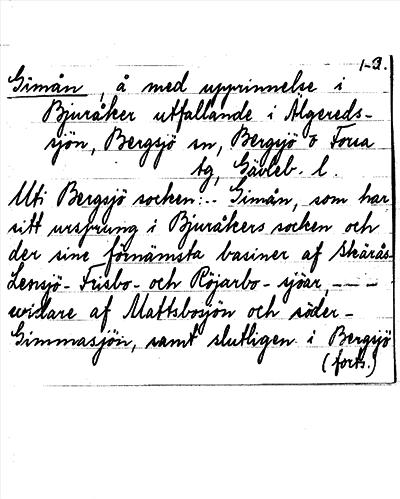 1-3.
Gimån, å med upprinnelse i
Bjuråker utfallande i Älgereds-
sjön, Bergsjö sn, Bergsjö o Forsa
tg, Gävleb. l.
Uti Bergsjö socken:.. Gimån, som har
sitt ursprung i Bjuråkers socken och
der sine förnämsta basiner af Skärås-
Lensjö- Frisbo- och Röjarbo- sjöar, ---
widare af Mattsbosjön och söder-
Gimmasjön, samt slutligen i Bergsjö
(forts.)